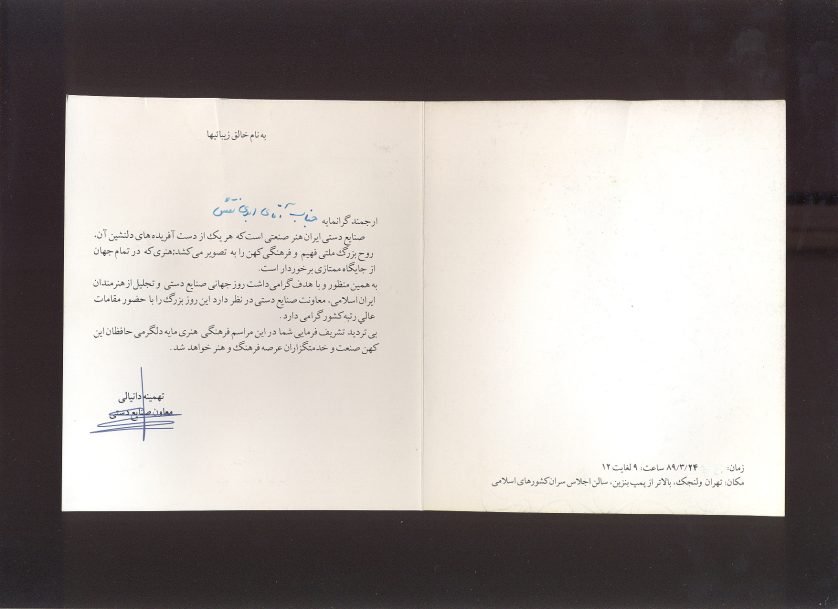 به نام خالق زیبائیها
ارجمند گرانمایه جناب آقای
صنایع دستی ایران هنر صنعتی است که هر یک از دست آفریده های دلنشین آن،
روح بزرگ ملتی فهیم و فرهنگی کهن را به تصویر می کشد؛ هنری که در تمام جهان
از جایگاه ممتازی برخوردار است.
به همین منظور و با هدف گرامی داشت روز جهانی صنایع دستی و تجلیل از هنرمندان
ایران اسلامی، معاونت صنایع دستی در نظر دارد این روز بزرگ را با حضور مقامات
عالی رتبه کشور گرامی دارد.
بی تردید تشریف فرمایی شما در این مراسم فرهنگی هنری مایه دلگرمی حافظان این
کهن صنعت و خدمتگزاران عرصه فرهنگ و هنر خواهد شد.
تهمینه دانیالی
معاون صنایع دستی
زمان: ۸۹/۳/۲۴ ساعت: ۹ لغایت ۱۲
مکان: تهران ولنجک، بالاتر از پمپ بنزین، سالن اجلاس سران کشورهای اسلامی